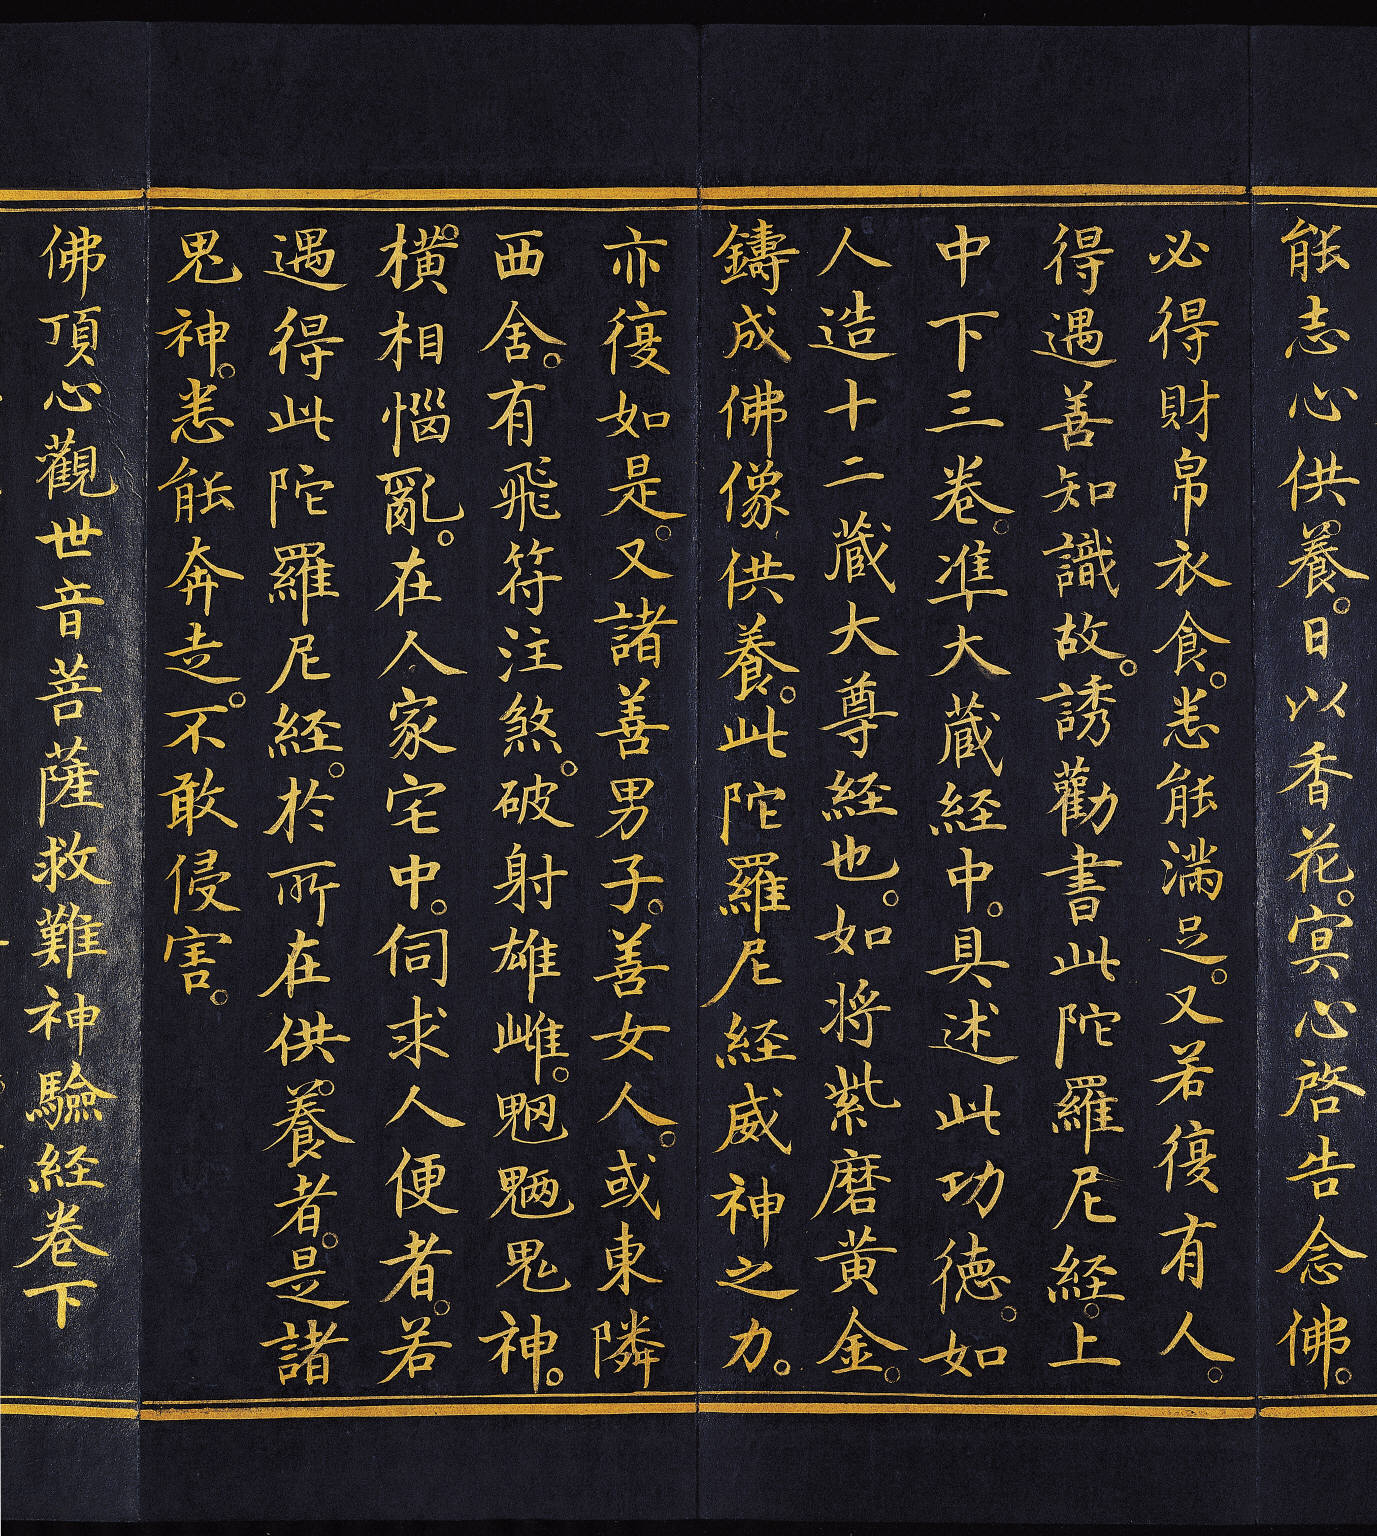 能志心供養。日以香花。㝠心啓告念佛。
必得財帛衣食。悉能滿足。又若復有人。
得遇善知識故。誘勸書此陀羅尼経。上
中下三卷。準大蔵経中。具述此功德。如
人造十二蔵大尊経也。如将紫磨黄金。
鑄成佛像供養。此陀羅尼経威神之力。
亦復如是。又諸善男子。善女人。或東隣
西舍。有飛符注煞。破射雄雌。魍魎鬼神。
橫相惱亂。在人家宅中。伺求人便者。若
遇得此陀羅尼経。於所在供養者。是諸
鬼神。悉能奔走。不敢侵害。
佛頂心觀世音菩薩救難神驗経卷下